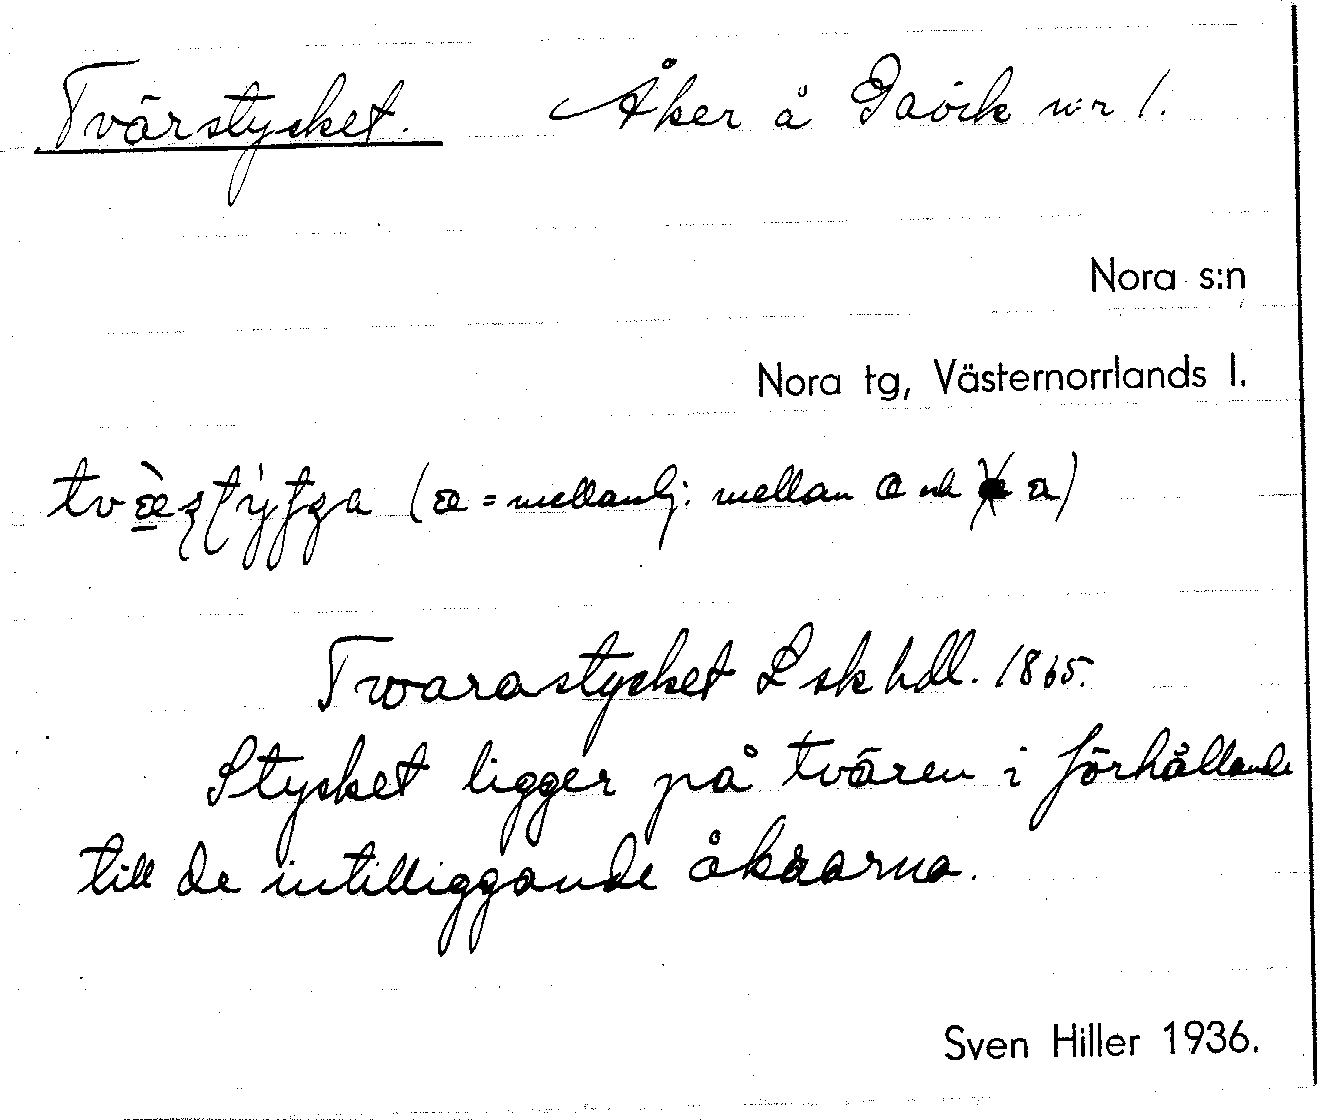 Tvärstycket. Åker å Gavik n:r 1.
Nora s:n
Nora tg, Västernorrlands l.
(æ = mellanlj. mellan a och a)
Tvarastycket Lsk hdl. 1865.
Stycket ligger på tvären i förhållande
till de intilliggande åkrarna.
Sven Hiller 1936.